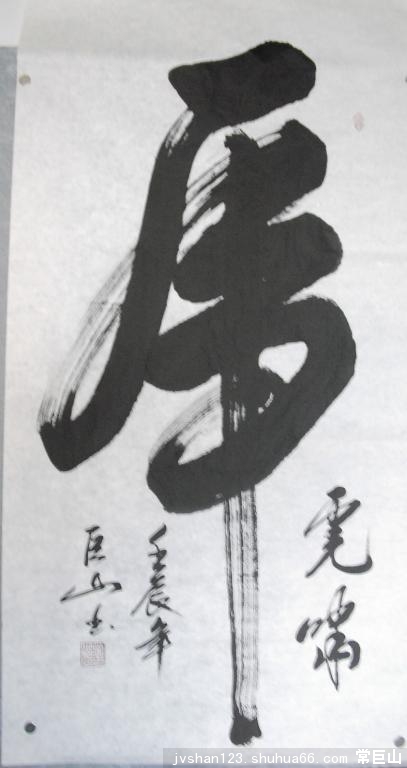 虎
虎啸
壬辰年
巨山书
jvshan123.shuhua66.com 常巨山